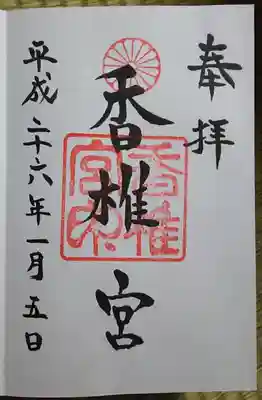 奉拝
香椎宮
平成二十六年一月五日
香椎宮印